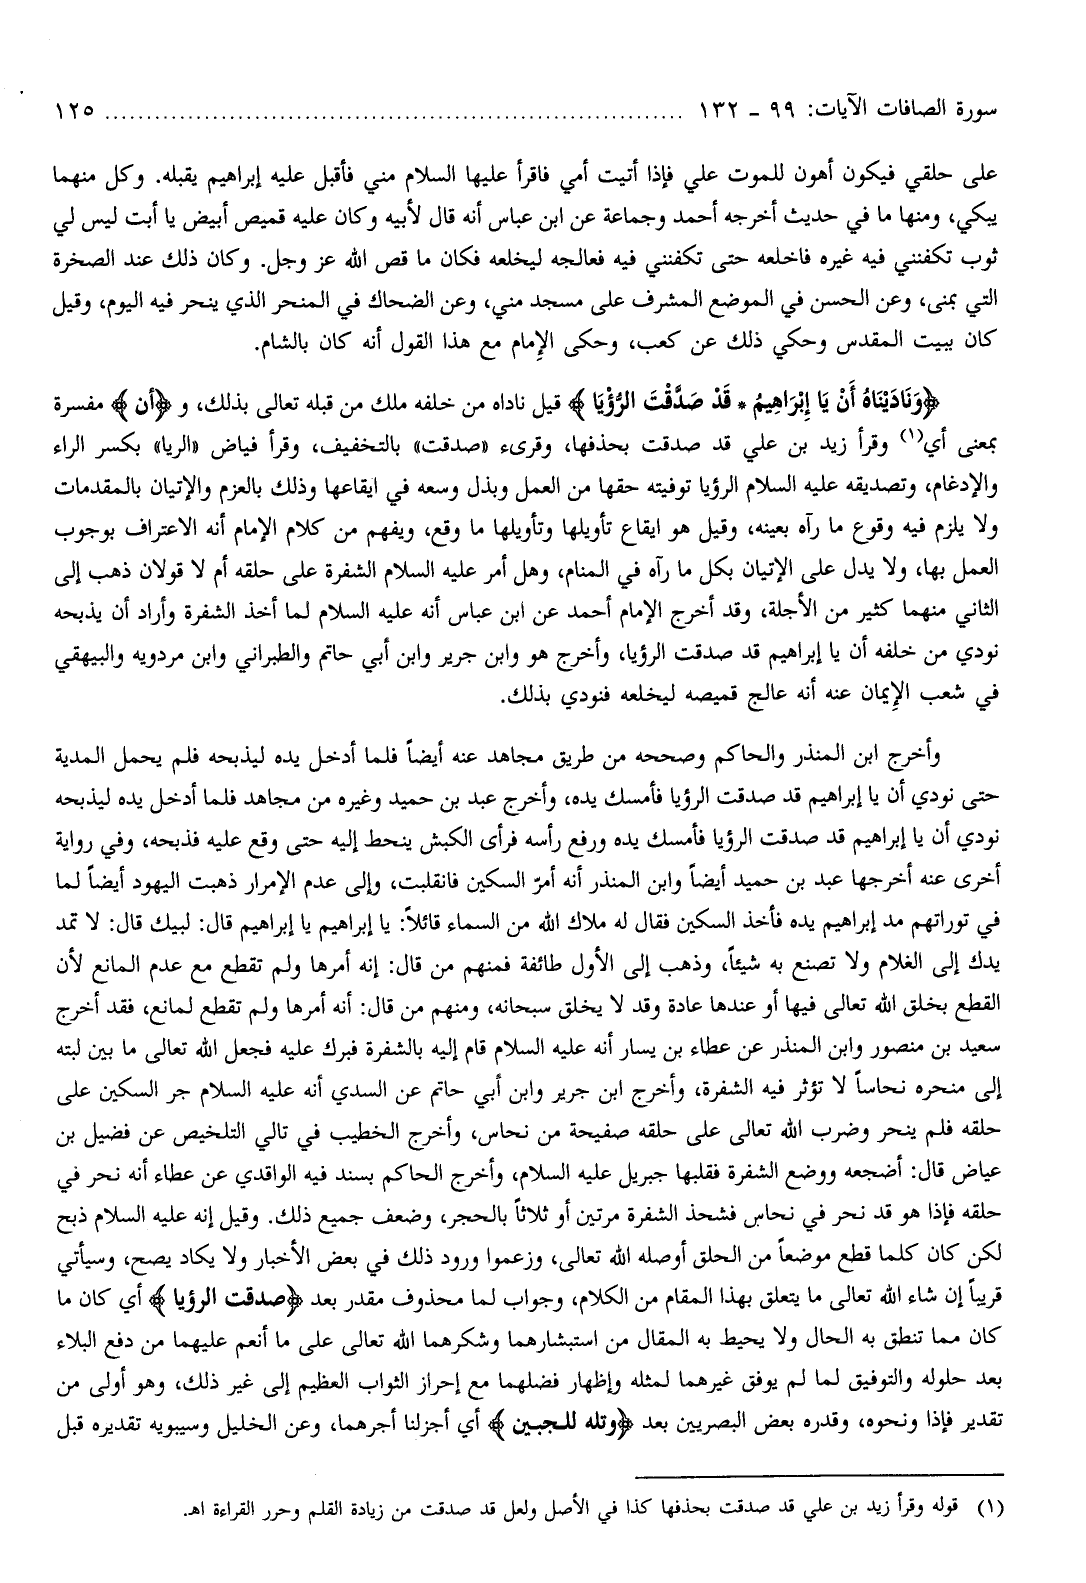 سورة الصافات الآيات: ٩٩ ـ ١٣٢ ........................................................................ ١٢٥
على حلقي فيكون أهون للموت علي فإذا أتيت أمي فاقرأ عليها السلام مني فأقبل عليه إبراهيم يقبله. وكل منهما
يبكي، ومنها ما في حديث أخرجه أحمد وجماعة عن ابن عباس أنه قال لأبيه وكان عليه قميص أبيض يا أبت ليس لي
ثوب تكفنني فيه غيره فاخلعه حتى تكفنني فيه فعالجه ليخلعه فكان ما قص الله عز وجل. وكان ذلك عند الصخرة
التي بمنى، وعن الحسن في الموضع المشرف على مسجد منى، وعن الضحاك في المنحر الذي ينحر فيه اليوم، وقيل
كان ببيت المقدس وحكي ذلك عن كعب، وحكى الإمام مع هذا القول أنه كان بالشام.
﴿وَنَادَيْنَاهُ أَنْ يَا إِبْرَاهِيمُ * قَدْ صَدَّقْتَ الرُّؤْيَا﴾ قيل ناداه من خلفه ملك من قبله تعالى بذلك، و﴿أن﴾ مفسرة
بمعنى أي(١) وقرأ زيد بن علي قد صدقت بحذفها، وقرىء «صدقت» بالتخفيف، وقرأ فياض «الريا» بكسر الراء
والإدغام، وتصديقه عليه السلام الرؤيا توفيته حقها من العمل وبذل وسعه في ايقاعها وذلك بالعزم والإتيان بالمقدمات
ولا يلزم فيه وقوع ما رآه بعينه، وقيل هو ايقاع تأويلها وتأويلها ما وقع، ويفهم من كلام الإمام أنه الاعتراف بوجوب
العمل بها، ولا يدل على الإتيان بكل ما رآه في المنام، وهل أمر عليه السلام الشفرة على حلقه أم لا قولان ذهب إلى
الثاني منهما كثير من الأجلة، وقد أخرج الإمام أحمد عن ابن عباس أنه عليه السلام لما أخذ الشفرة وأراد أن يذبحه
نودي من خلفه أن يا إبراهيم قد صدقت الرؤيا، وأخرج هو وابن جرير وابن أبي حاتم والطبراني وابن مردويه والبيهقي
في شعب الإيمان عنه أنه عالج قميصه ليخلعه فنودي بذلك.
وأخرج ابن المنذر والحاكم وصححه من طريق مجاهد عنه أيضاً فلما أدخل يده ليذبحه فلم يحمل المدية
حتى نودي أن يا إبراهيم قد صدقت الرؤيا فأمسك يده، وأخرج عبد بن حميد وغيره من مجاهد فلما أدخل يده ليذبحه
نودي أن يا إبراهيم قد صدقت الرؤيا فأمسك يده ورفع رأسه فرأى الكبش ينحط إليه حتى وقع عليه فذبحه، وفي رواية
أخرى عنه أخرجها عبد بن حميد أيضاً وابن المنذر أنه أمرّ السكين فانقلبت، وإلى عدم الإمرار ذهبت اليهود أيضاً لما
في توراتهم مد إبراهيم يده فأخذ السكين فقال له ملاك الله من السماء قائلاً: يا إبراهيم يا إبراهيم قال: لبيك قال: لا تمد
يدك إلى الغلام ولا تصنع به شيئاً، وذهب إلى الأول طائفة فمنهم من قال: إنه أمرها ولم تقطع مع عدم المانع لأن
القطع بخلق الله تعالى فيها أو عندها عادة وقد لا يخلق سبحانه، ومنهم من قال: أنه أمرها ولم تقطع لمانع، فقد أخرج
سعيد بن منصور وابن المنذر عن عطاء بن يسار أنه عليه السلام قام إليه بالشفرة فبرك عليه فجعل الله تعالى ما بين لبته
إلى منحره نحاساً لا تؤثر فيه الشفرة، وأخرج ابن جرير وابن أبي حاتم عن السدي أنه عليه السلام جر السكين على
حلقه فلم ينحر وضرب الله تعالى على حلقه صفيحة من نحاس، وأخرج الخطيب في تالي التلخيص عن فضيل بن
عياض قال: أضجعه ووضع الشفرة فقلبها جبريل عليه السلام، وأخرج الحاكم بسند فيه الواقدي عن عطاء أنه نحر في
حلقه فإذا هو قد نحر في نحاس فشحذ الشفرة مرتين أو ثلاثاً بالحجر، وضعف جميع ذلك. وقيل إنه عليه السلام ذبح
لكن كان كلما قطع موضعاً من الحلق أوصله الله تعالى، وزعموا ورود ذلك في بعض الأخبار ولا يكاد يصح، وسيأتي
قريباً إن شاء الله تعالى ما يتعلق بهذا المقام من الكلام، وجواب لما محذوف مقدر بعد ﴿صدقت الرؤيا﴾ أي كان ما
كان مما تنطق به الحال ولا يحيط به المقال من استبشارهما وشكرهما الله تعالى على ما أنعم عليهما من دفع البلاء
بعد حلوله والتوفيق لما لم يوفق غيرهما لمثله وإظهار فضلهما مع إحراز الثواب العظيم إلى غير ذلك، وهو أولى من
تقدير فإذا ونحوه، وقدره بعض البصريين بعد ﴿وتله للجبين﴾ أي أجزلنا أجرهما، وعن الخليل وسيبويه تقديره قبل
(١) قوله وقرأ زيد بن علي قد صدقت بحذفها كذا في الأصل ولعل قد صدقت من زيادة القلم وحرر القراءة اهـ.